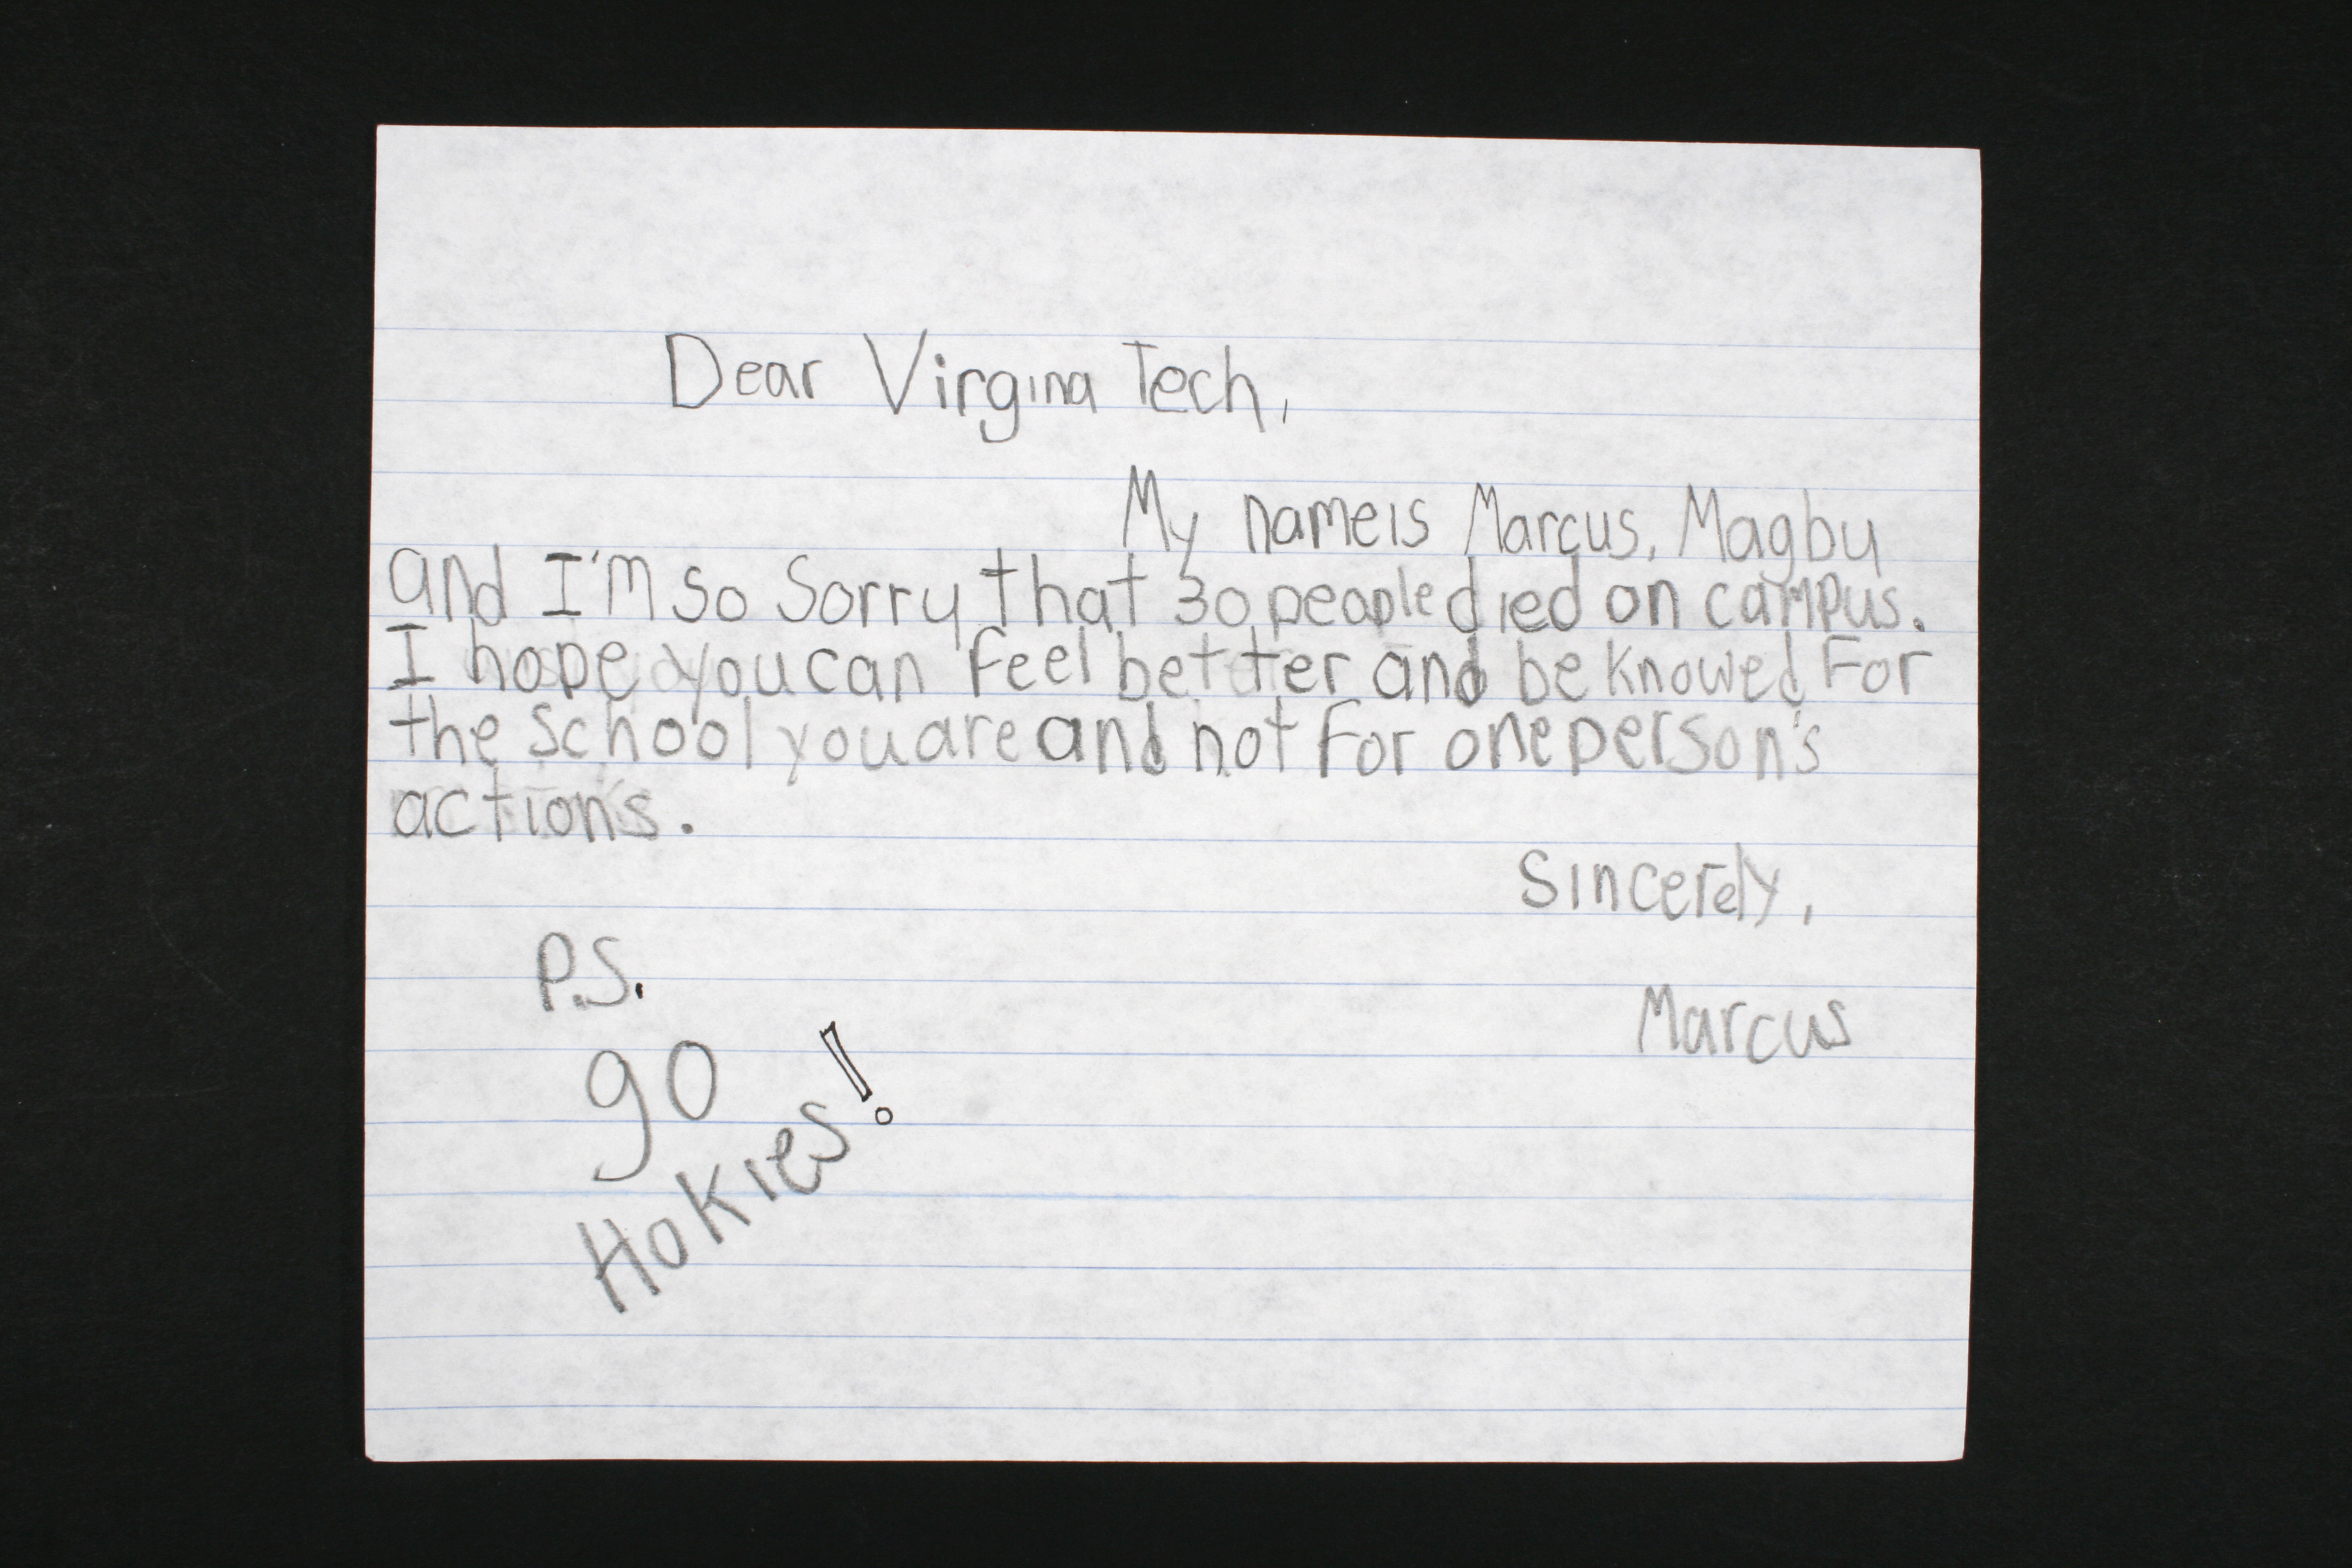 Dear Virgina Tech,
My name is Marcus, Magbu
and I'm so Sorry that 30 people died on campus.
I hope you can feel better and be knowed For
the school you are and not For one person's
actions.
Sincerely,
Marcus
P.S.
go
Hokies!